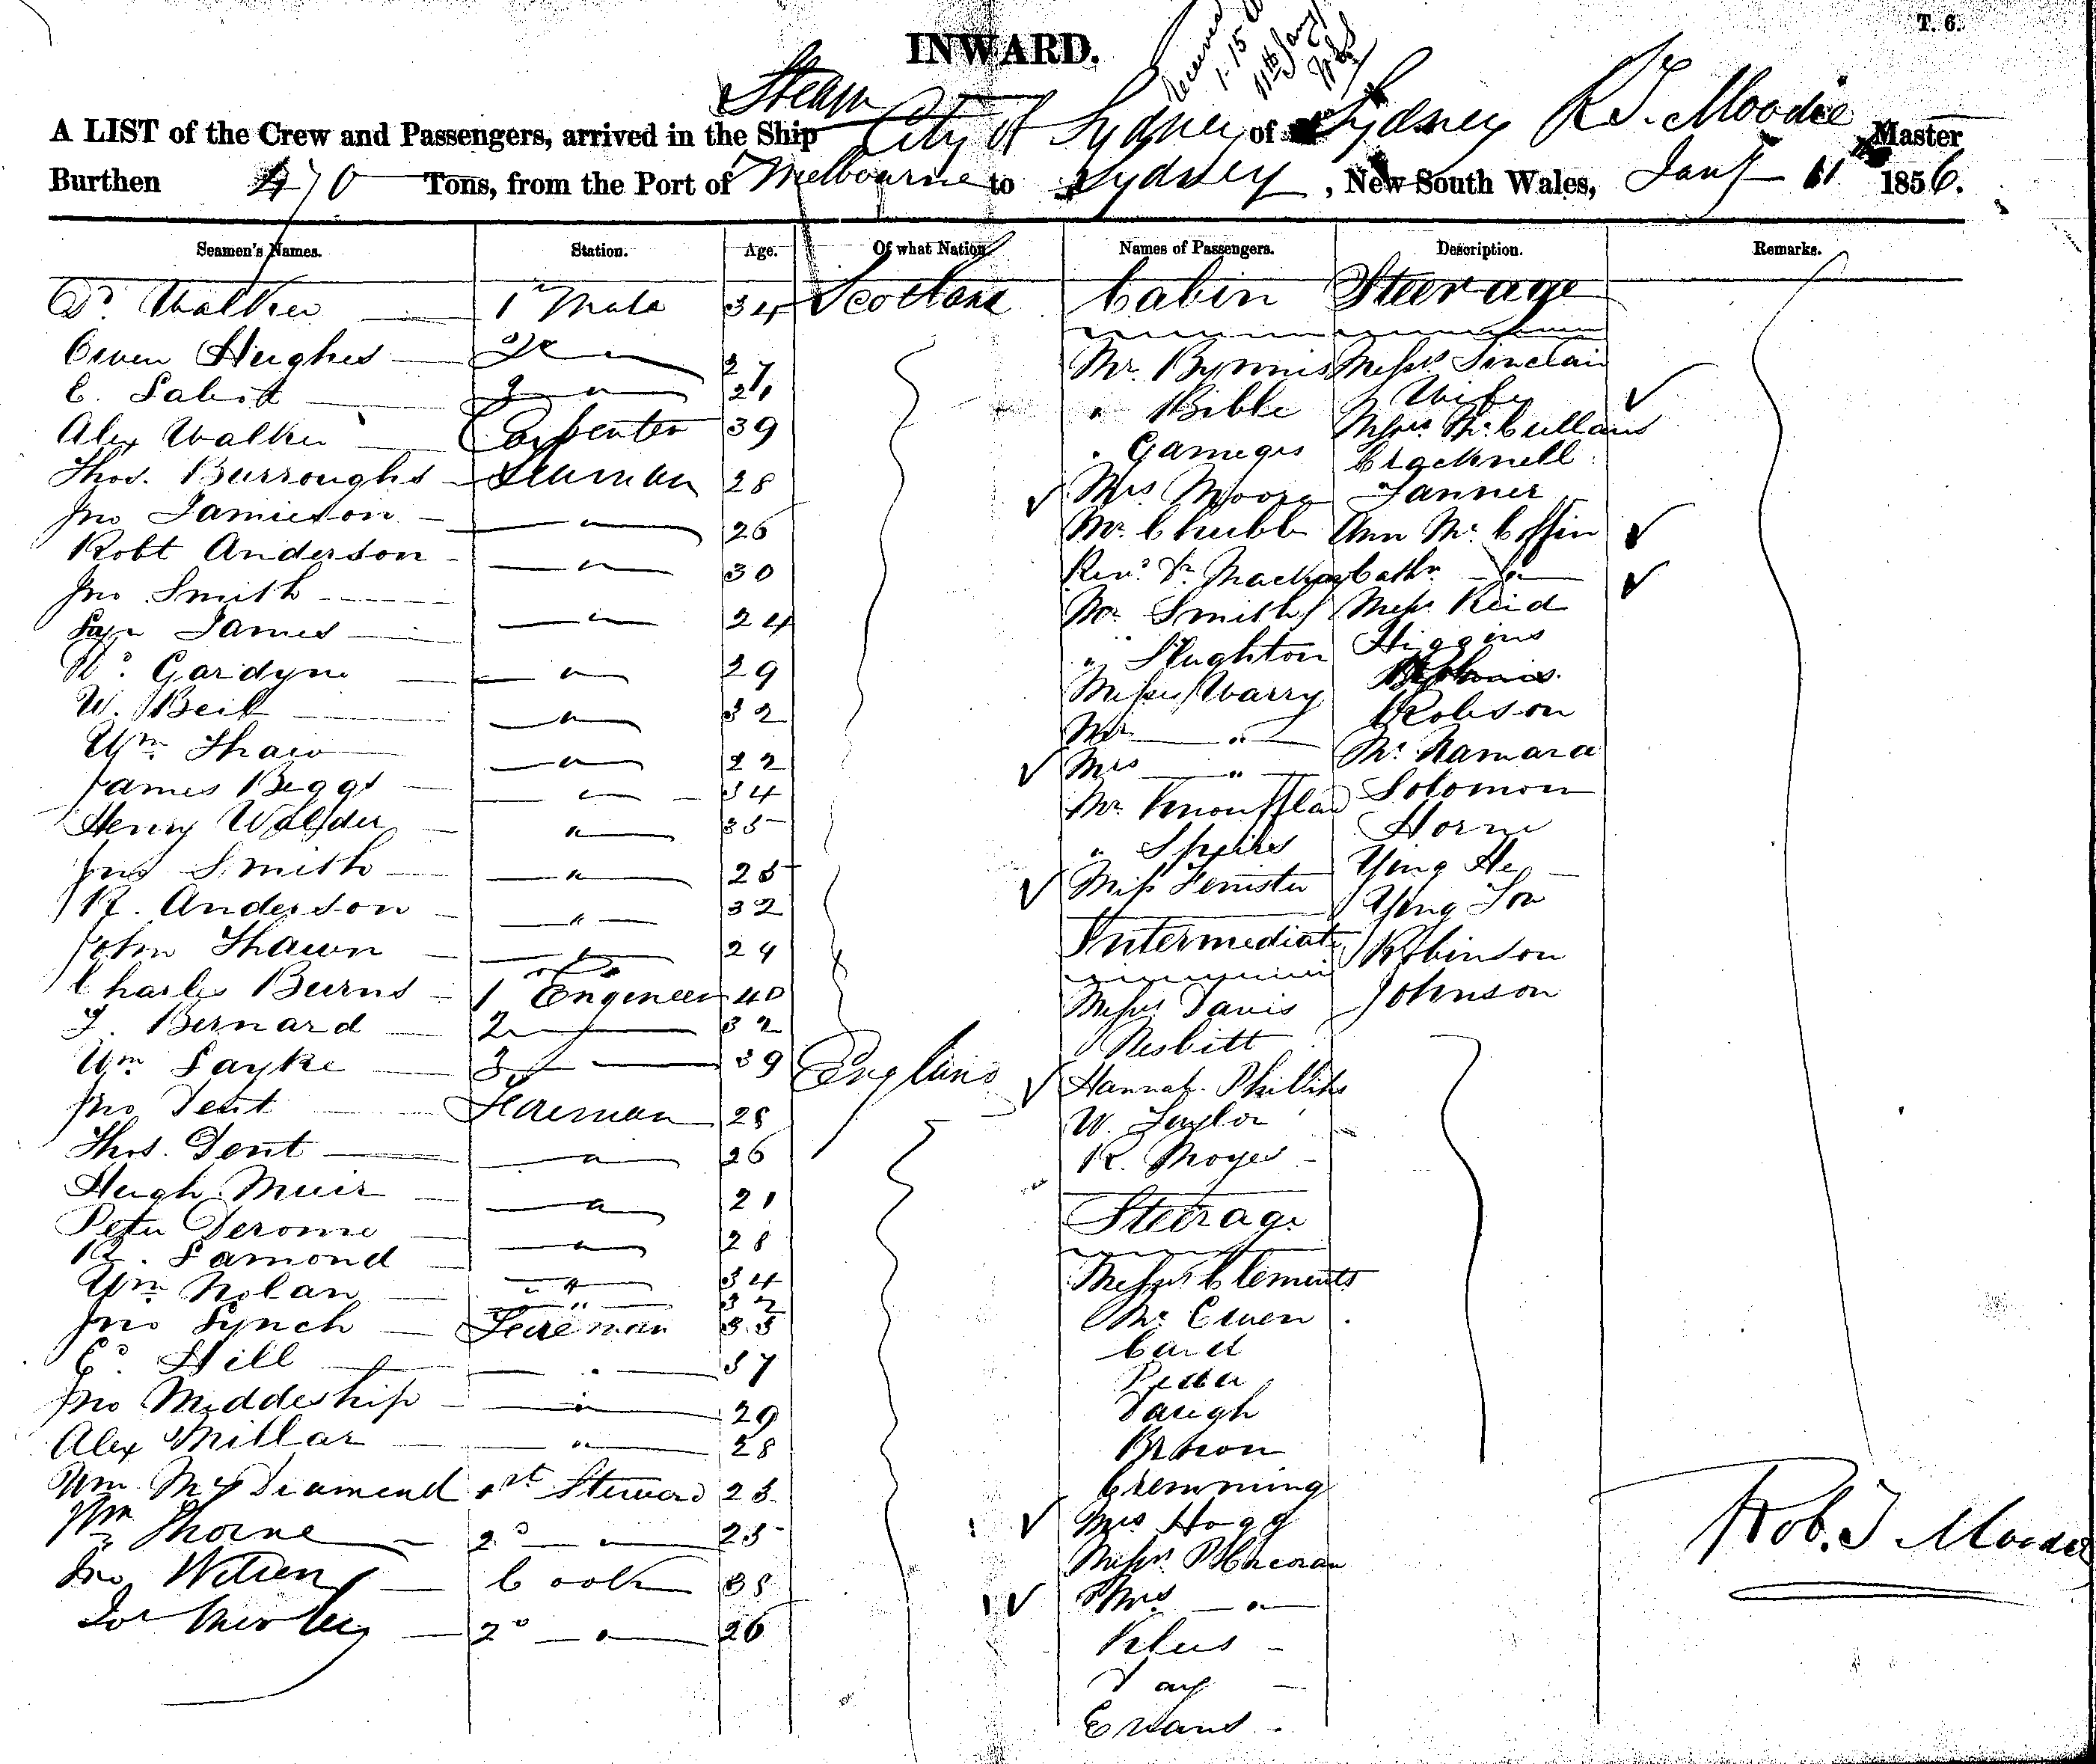 T. 6.
INWARD.
Received
1.15
11th Jany
Steam
A LIST of the Crew and Passengers, arrived in the Ship City of Sydney of Sydney R T. Moodie Master
Burthen 470 Tons, from the Port of Melbourne to Sydney, New South Wales, Jany 11 1856.
Seamen's Names. Station. Age. Of what Nation. Names of Passengers. Description. Remarks.
Walker 1st Mate 34 Scotland Cabin Steerage
Owen Hughes 27 Mr. Messrs Sinclair
C. 3 " 21 " Bible Wife
Alex Walker Carpenter 39 " Gameges Messrs McCullans
Thos. Burroughs Seaman 28 Mrs Moore Cracknell
Jno Jamieson " 26 Mr. Chubb Tanner
Robt Anderson " 30 Revd Dr. Mackay Ann Mc Coffin
Jno Smith " 24 Mr Smith Cathr "
James " 29 " Hughton Messr Reid
Gardyne " 32 Misses Warry Higgins
W. Beit " 22 Mr " Robson
Wm Shaw " 34 Mrs " McNamara
James Beggs " 35 Mr Knoufflad Solomon
Henry Walder " 25 " Spiers Horne
Jno Smith " 32 Miss Fenister Ying He
R. Anderson " 24 Intermediate Ying Son
John Shawn Messrs Davis Robinson
Charles Burns 1 Engeneer 40 Nesbitt Johnson
J. Bernard 2 32
Wm Sayke 3 39 England Hannah Phillips
Jno Dent Fireman 28 W. Taylor
Thos. Dent " 26 R. Moyes
Hugh Muir " 21 Steerage
Peter Jerome " 28 Messrs Clements
R. Lamond " 34 Mc Ewen
Wm Nolan " 32 Card
Jno Lynch Fireman 33 Peter
Hill " 37 Daugh
Jno Middeship " 29 Brown
Alex Millar " 28 Cremming
Wm McDiamend 1st Steward 23 Mrs Hogg
Wm Thorne 2d " 25 Messrs
Jno Wilson Cook 38 Mrs "
2d " 26 Klus
Evans
Rob. T Moodie